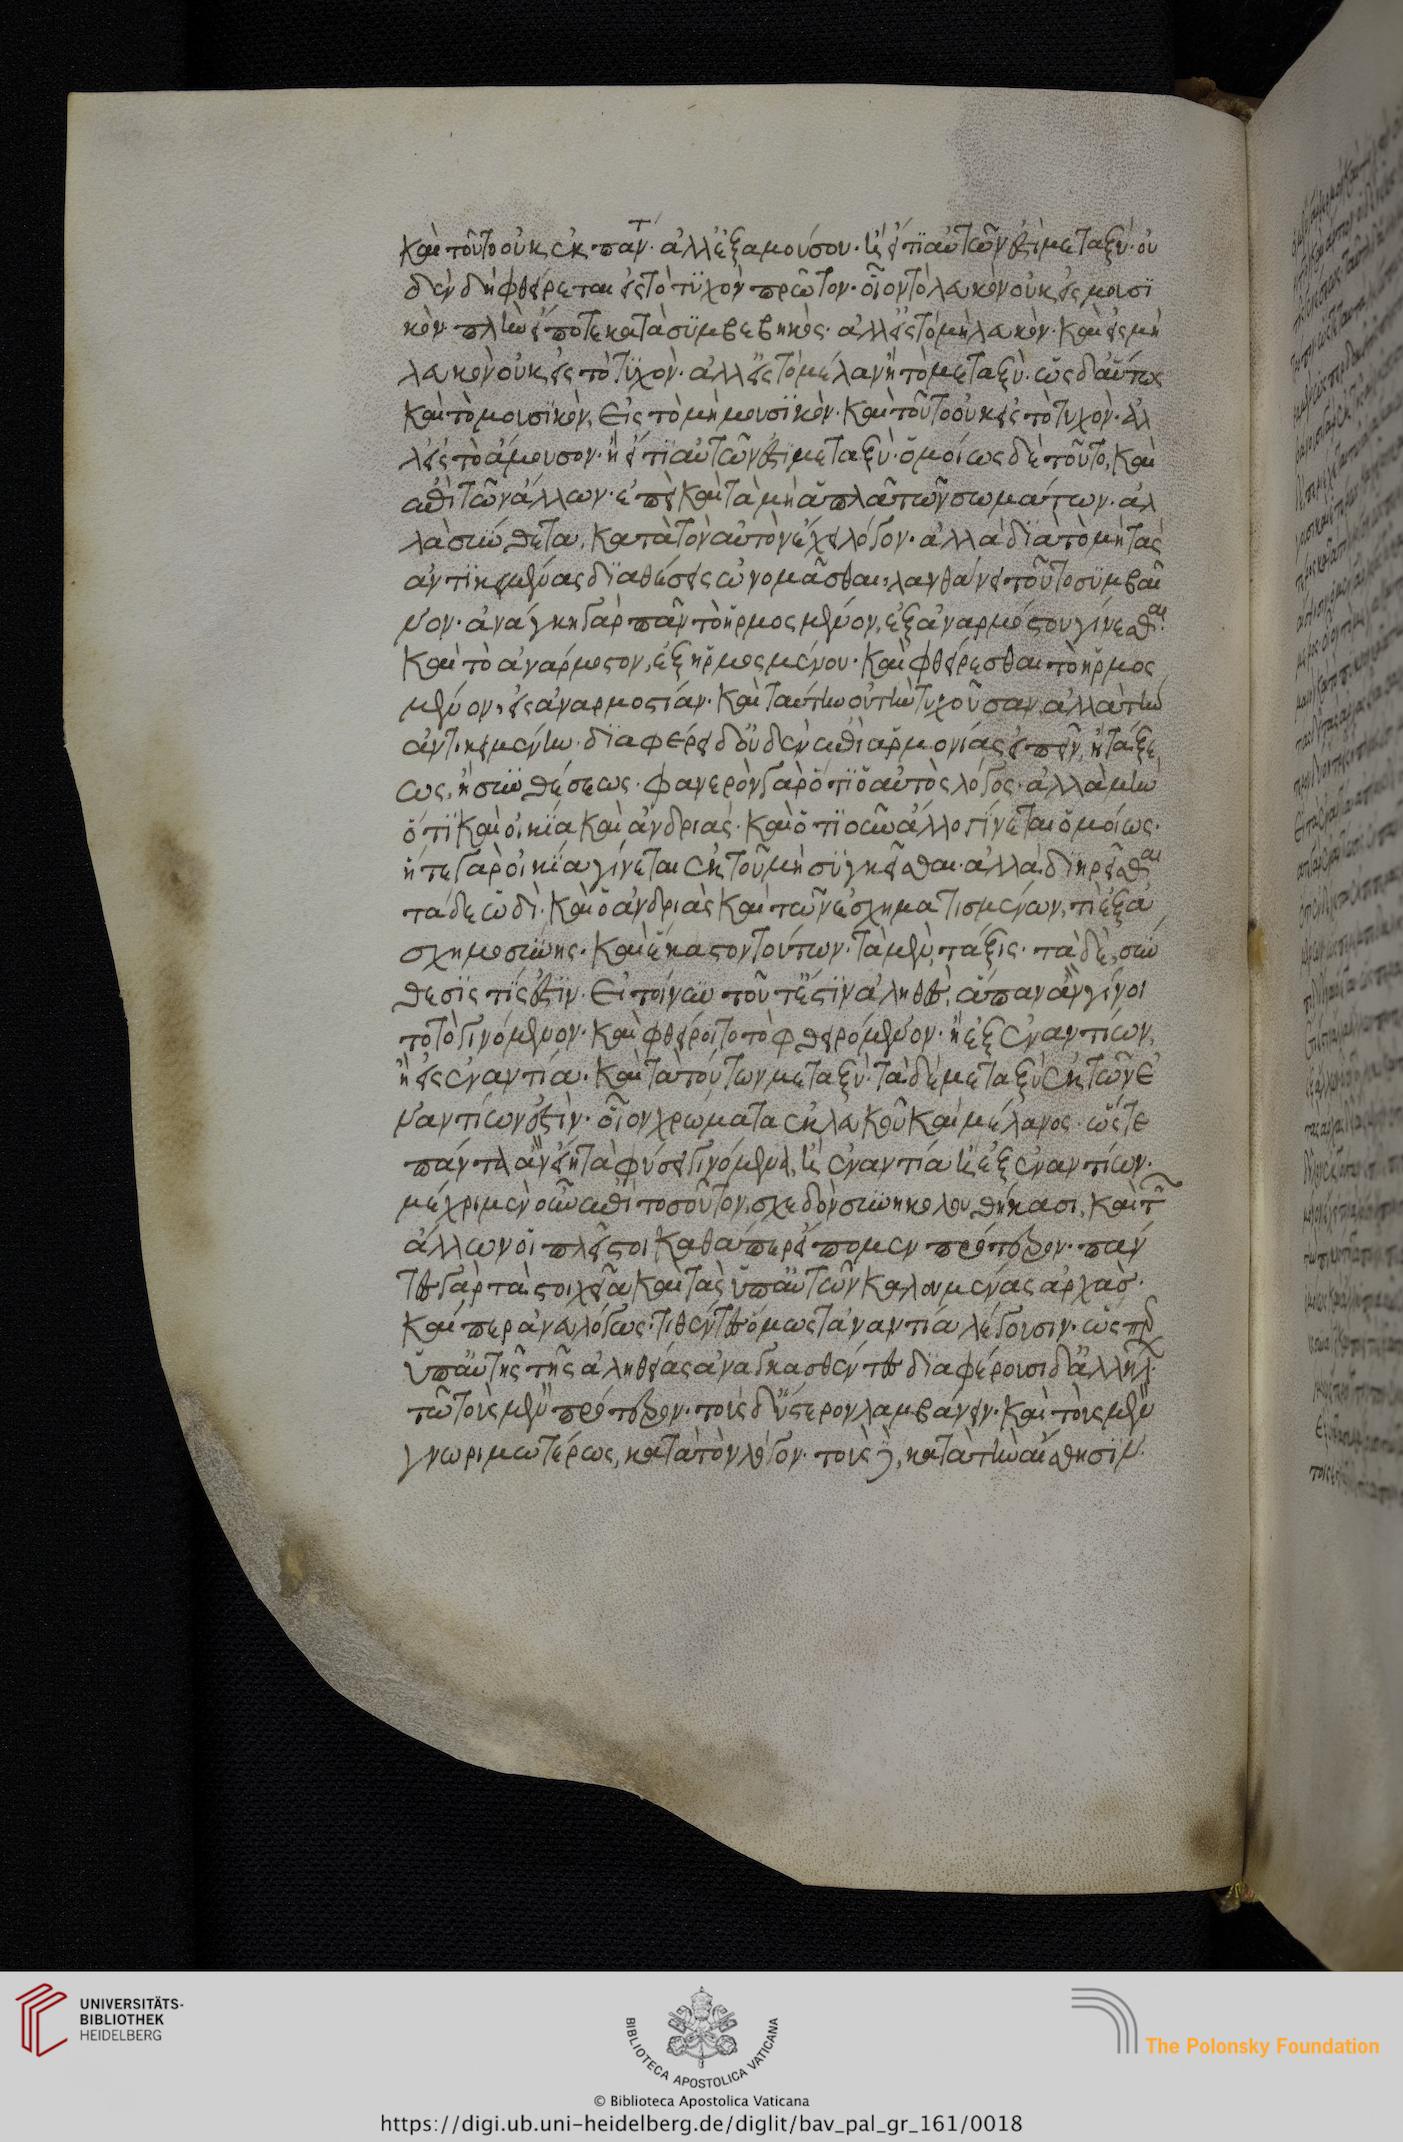 καὶ τοῦτο οὐκ ἐκ παντ· ἀλλ ἐξ ἀμούσου· ἢ εἴ τι αὐτῶν ἐστὶ μεταξύ· οὐ
δὲν δὴ φθείρεται εἰς τὸ τυχὸν πρῶτον· οἷον τὸ λευκὸν οὐκ εἰς μουσι
κὸν· πλὴν εἴ ποτε κατὰ συμβεβηκός· ἀλλ εἰς τὸ μὴ λευκόν· καὶ εἰς μὴ
λευκὸν οὐκ εἰς τὸ τυχὸν· ἀλλ εἰς τὸ μέλαν ἢ τὸ μεταξὺ· ὡς δ αὕτως
καὶ τὸ μουσικὸν, εἰς τὸ μὴ μουσικόν· καὶ τοῦτο οὐκ εἰς τὸ τυχὸν· ἀλ
λ εἰς τὸ ἄμουσον· ἢ εἴ τι αὐτῶν ἐστὶ μεταξὺ· ὁμοίως δὲ τοῦτο, καὶ
ἐπὶ τῶν ἄλλων· ἐπεὶ καὶ τὰ μὴ ἁπλᾶ τῶν σωμάτων· ἀλ
λὰ σύνθετα, κατὰ τὸν αὐτὸν ἔχει λόγον· ἀλλὰ διὰ τὸ μὴ τὰς
ἀντικειμένας διαθέσεις ὠνομᾶσθαι, λανθάνει τοῦτο συμβαῖ
νον· ἀνάγκη γὰρ πᾶν τὸ ἡρμοσμένον, ἐξ ἀναρμόστου γίνεσθαι·
καὶ τὸ ἀνάρμοστον, ἐξ ἡρμοσμένου· καὶ φθείρεσθαι τὸ ἡρμοσ
μένον, εἰς ἀναρμοστίαν· καὶ ταύτην οὐ τὴν τυχοῦσαν, ἀλλὰ τὴν
ἀντικειμένην· διαφέρει δ οὐδὲν ἐπὶ ἁρμονίας εἰπεῖν, ἢ τάξε
ως, ἢ συνθέσεως· φανερὸν γὰρ ὅτι ὁ αὐτὸς λόγος· ἀλλὰ μὴν
ὅτι καὶ οἰκία καὶ ἀνδριὰς· καὶ ὁτιοῦν ἄλλο γίνεται ὁμοίως·
ἥ τε γὰρ οἰκία γίνεται ἐκ τοῦ μὴ συγκεῖσθαι· ἀλλὰ διηρῆσθαι
τάδε ὡδὶ· καὶ ὁ ἀνδριὰς καὶ τῶν ἐσχηματισμένων, τὶ ἐξ ἀ
σχημοσύνης· καὶ ἕκαστον τούτων· τὰ μὲν τάξις· τὰ δὲ, σύν
θεσις τίς ἐστιν· Εἰ τοίνυν τοῦτ ἔστιν ἀληθὲς, ἅπαν ἂν γίνοι
το τὸ γινόμενον· καὶ φθείροιτο τὸ φθειρόμενον· ἢ ἐξ ἐναντίων,
ἢ εἰς ἐναντία· καὶ τὰ τούτων μεταξύ· τὰ δὲ μεταξὺ ἐκ τῶν ἐ
ναντίων ἐστὶν· οἷον χρώματα ἐκ λευκοῦ καὶ μέλανος· ὥστε
πάντα ἂν εἴη τὰ φύσει γινόμενα, ἢ ἐναντία ἢ ἐξ ἐναντίων·
μέχρι μὲν οὖν ἐπὶ τοσοῦτον, σχεδὸν συνηκολουθήκασι, καὶ τ
ἄλλων οἱ πλεῖστοι καθάπερ εἴπομεν πρότερον· πάν
τες γὰρ τὰ στοιχεῖα καὶ τὰς ὑπ αὐτῶν καλουμένας ἀρχάς·
καίπερ ἄνευ λόγως· τιθέντες ὅμως τἀναντία λέγουσιν· ὥσπερ
ὑπ αὐτῆς τῆς ἀληθείας ἀναγκασθέντες διαφέρουσι δ ἀλλήλ·
τῶ τοὺς μὲν πρότερον· τοὺς δ ὕστερον λαμβάνειν· καὶ τοὺς μὲν
γνωριμωτέρως, κατὰ τὸν λόγον· τοὺς δὲ, κατὰ τὴν αἴσθησιν·
UNIVERSITÄTS-
BIBLIOTHEK
HEIDELBERG
BIBLIOTECA APOSTOLICA VATICANA
The Polonsky Foundation
© Biblioteca Apostolica Vaticana
https://digi.ub.uni-heidelberg.de/diglit/bav_pal_gr_161/0018